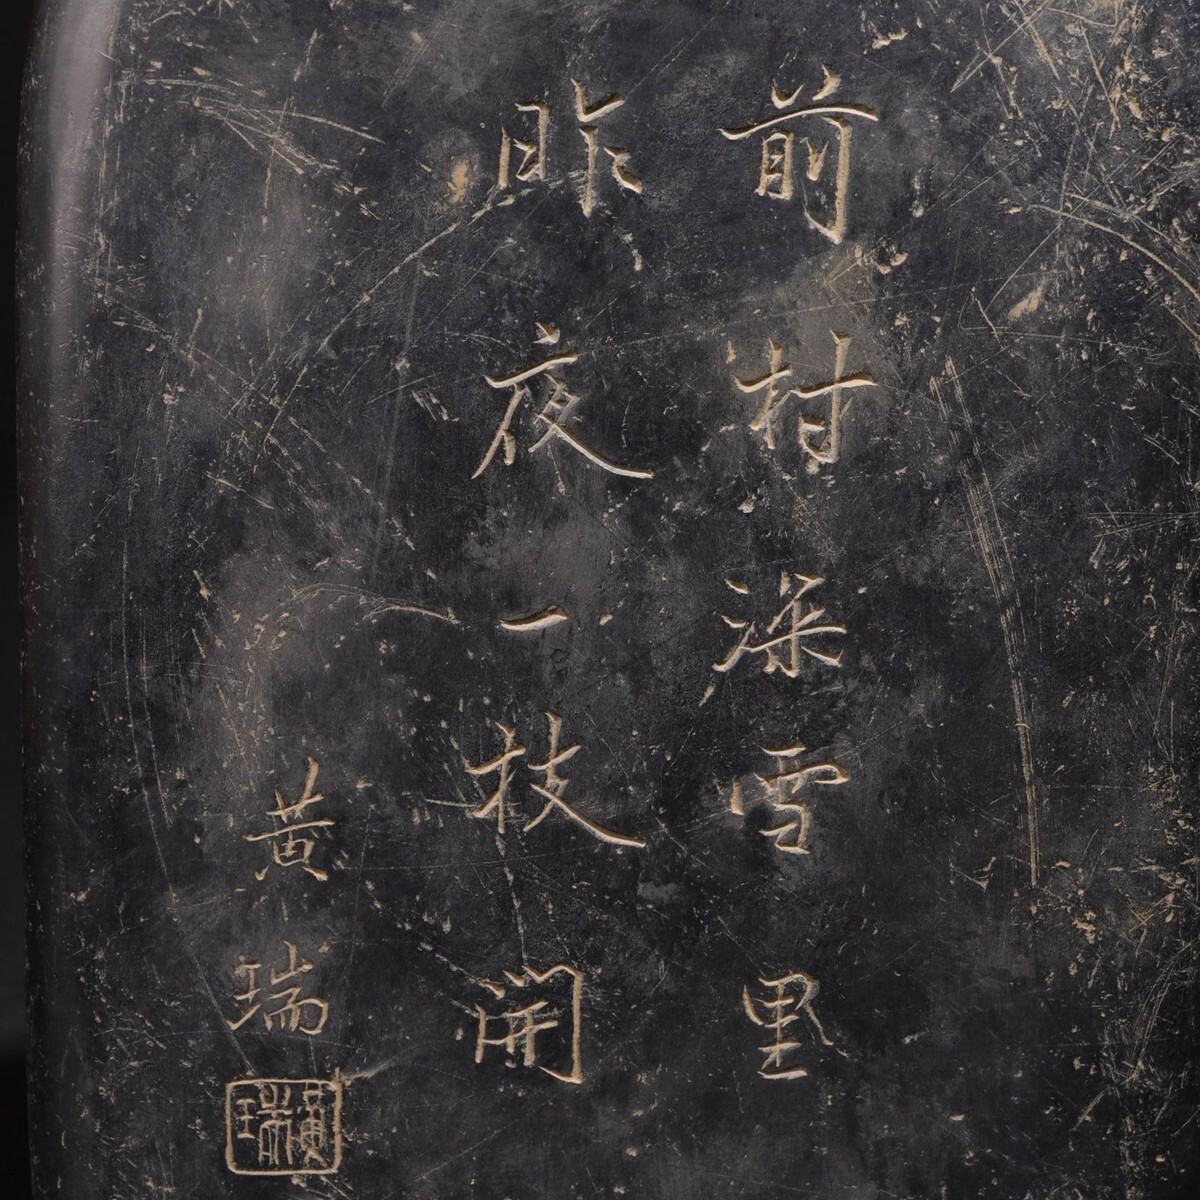 前村深雪里
昨夜一枝開
黃瑞
黃瑞